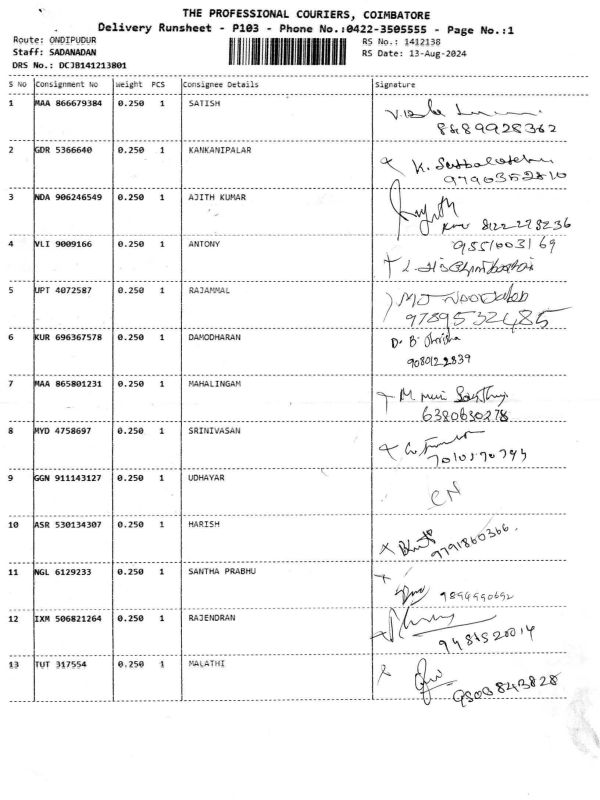 THE PROFESSIONAL COURIERS, COIMBATORE
Delivery Runsheet - P103 - Phone No.:0422-3505555 - Page No.:1
Route: ONDIPUDUR
RS No.: 1412138
Staff: SADANADAN
RS Date: 13-Aug-2024
DRS No.: DCJB141213801
S No Consignment No Weight PCS Consignee Details Signature
1 MAA 866679384 0.250 1 SATISH
8489928362
2 GDR 5366640 0.250 1 KANKANIPALAR
K.
9790352810
3 NDA 906246549 0.250 1 AJITH KUMAR
8122273236
4 VLI 9009166 0.250 1 ANTONY
9551003169
5 UPT 4072587 0.250 1 RAJAMMAL
9789532485
6 KUR 696367578 0.250 1 DAMODHARAN
D. B.
9080122839
7 MAA 865801231 0.250 1 MAHALINGAM
M.
6380630278
8 MYD 4758697 0.250 1 SRINIVASAN
9 GGN 911143127 0.250 1 UDHAYAR
CN
10 ASR 530134307 0.250 1 HARISH
9791860366.
11 NGL 6129233 0.250 1 SANTHA PRABHU
9894990692
12 IXM 506821264 0.250 1 RAJENDRAN
13 TUT 317554 0.250 1 MALATHI
9503843828